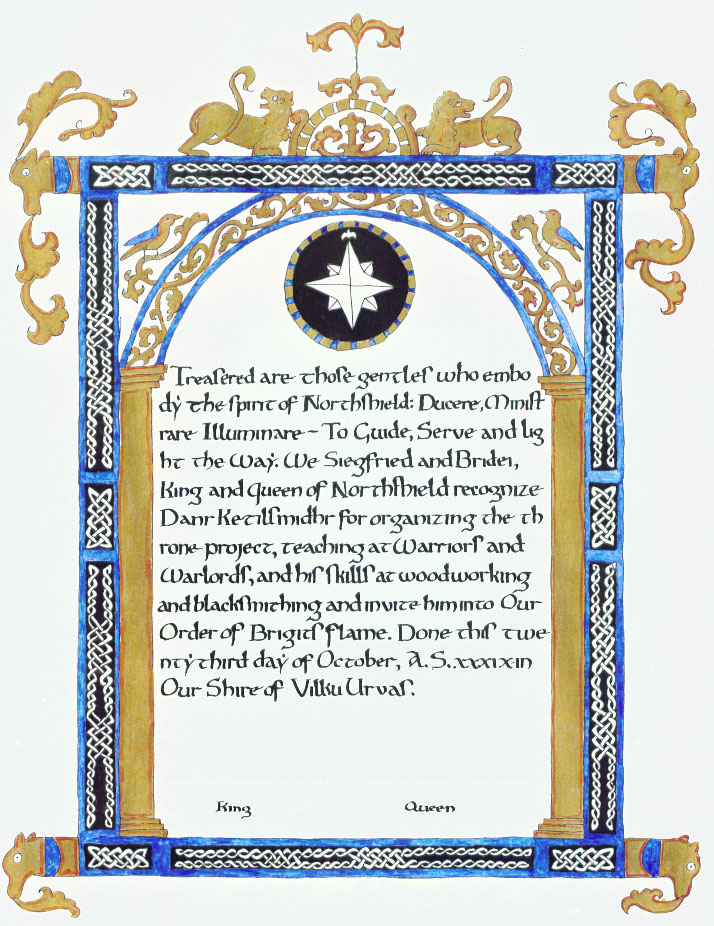 Treasered are those gentles who embo
dy the spirit of Northshield: Ducere, Minist
rare Illuminare~ To Guide, Serve and lig
ht the Way. We Siegfried and Bridei,
King and Queen of Northshield recognize
Danr Ketillsmidhr for organizing the th
rone project, teaching at Warriors and
Warlords, and his skills at woodworking
and blacksmithing and invite him into Our
Order of Brigits flame. Done this twe
nty third day of October, A.S. xxxix in
Our Shire of Vilku Urvas.
King Queen